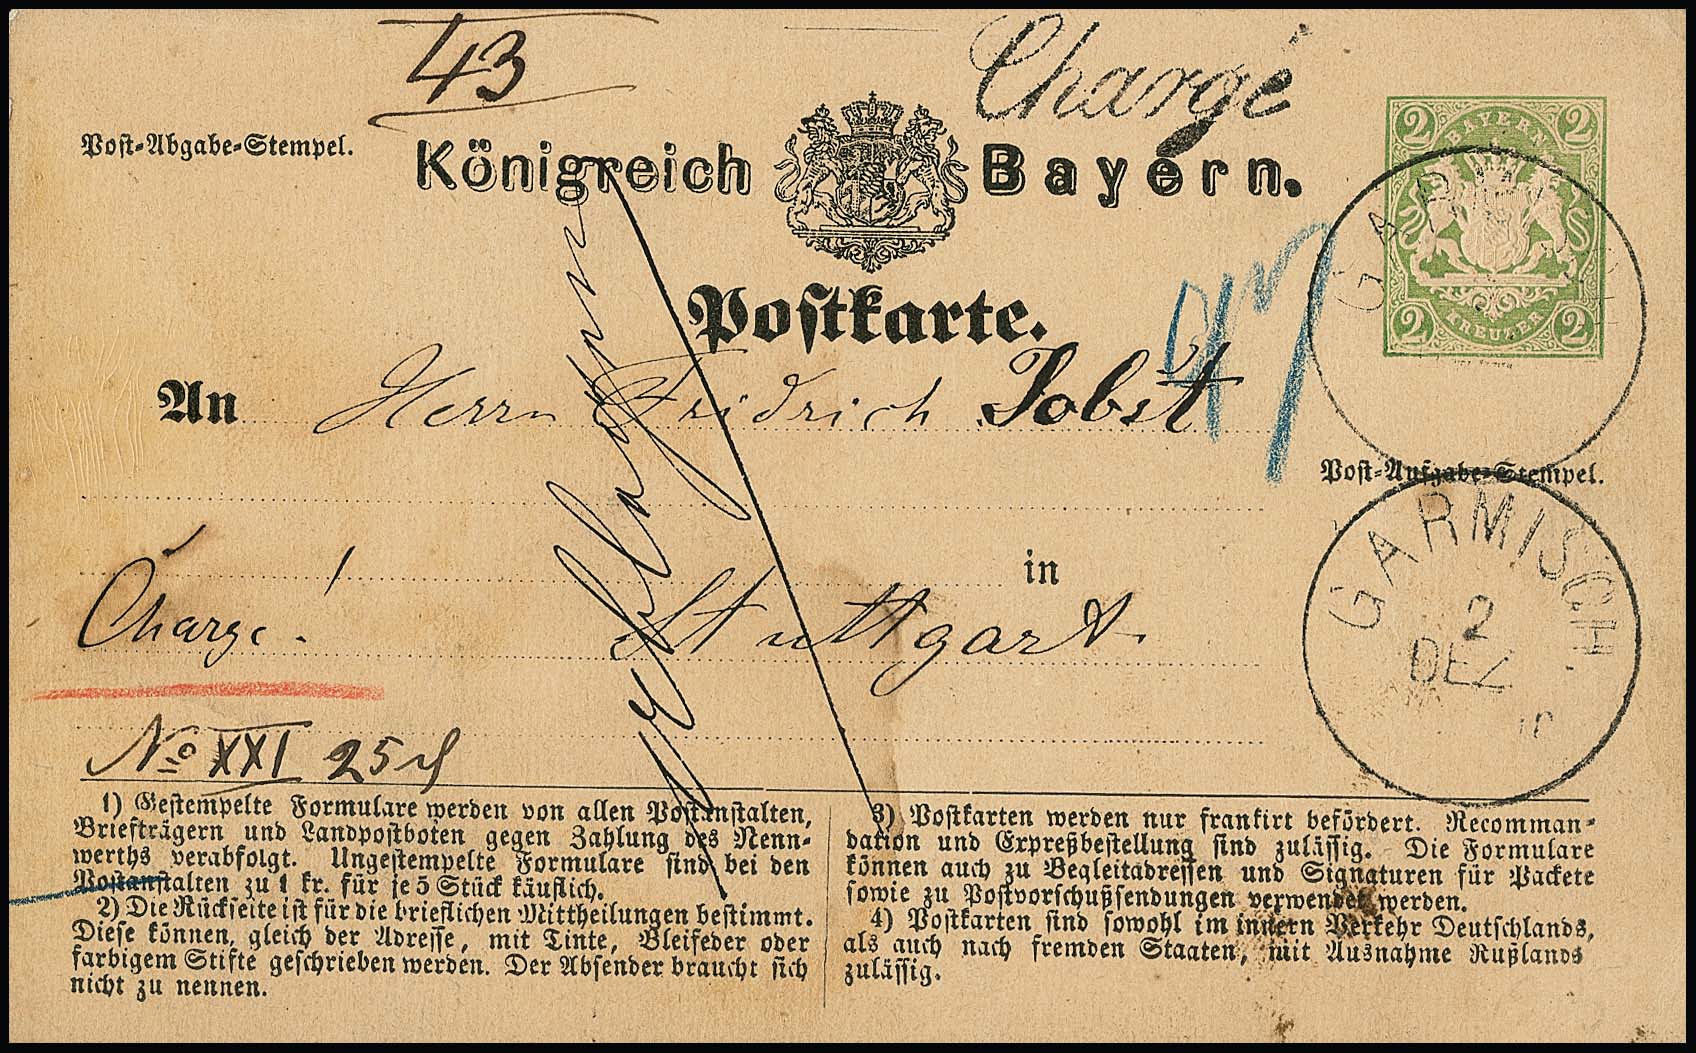 43
Chargé
Post-Abgabe-Stempel.
Königreich Bayern.
2 BAYERN 2
2 KREUZER 2
Postkarte.
An Herrn Fridrich Jobst
Post-Aufgabe-Stempel.
GARMISCH
2
DEZ
in
Chargé! Stuttgart
No XXI 25
1) Gestempelte Formulare werden von allen Postanstalten,
Briefträgern und Landpostboten gegen Zahlung des Nenn-
werths verabfolgt. Ungestempelte Formulare sind bei den
Postanstalten zu 1 kr. für je 5 Stück käuflich.
2) Die Rückseite ist für die brieflichen Mittheilungen bestimmt.
Diese können, gleich der Adresse, mit Tinte, Bleifeder oder
farbigem Stifte geschrieben werden. Der Absender braucht sich
nicht zu nennen.
3) Postkarten werden nur frankirt befördert. Recomman-
dation und Expreßbestellung sind zulässig. Die Formulare
können auch zu Begleitadressen und Signaturen für Packete
sowie zu Postvorschußsendungen verwendet werden.
4) Postkarten sind sowohl im innern Verkehr Deutschlands,
als auch nach fremden Staaten, mit Ausnahme Rußlands
zulässig.